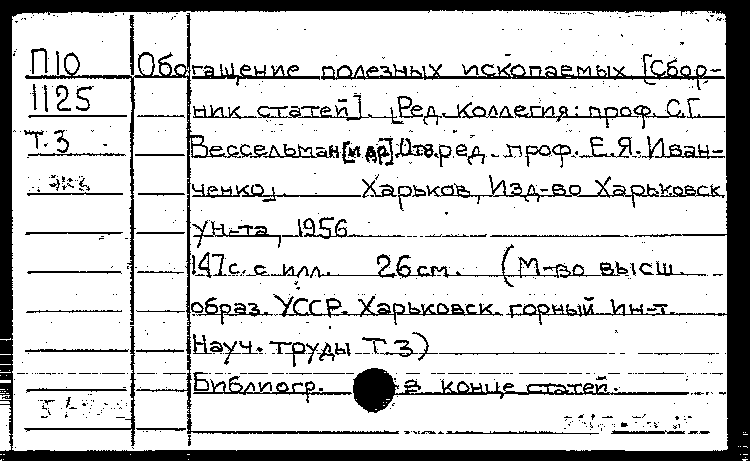 П10 Обогащение полезных ископаемых [Сбор-
1125 ник статей]. [Ред. коллегия: проф. С.Г.
Т.3 Вессельман [и др.]. Отв. ред. проф. Е.Я. Иван-
экз ченко]. Харьков, Изд-во Харьковск
ун-та, 1956
147с. с илл. 26см. (М-во высш.
образ. УССР. Харьковск. горный ин-т.
Науч. труды Т.3)
Библиогр. в конце статей.